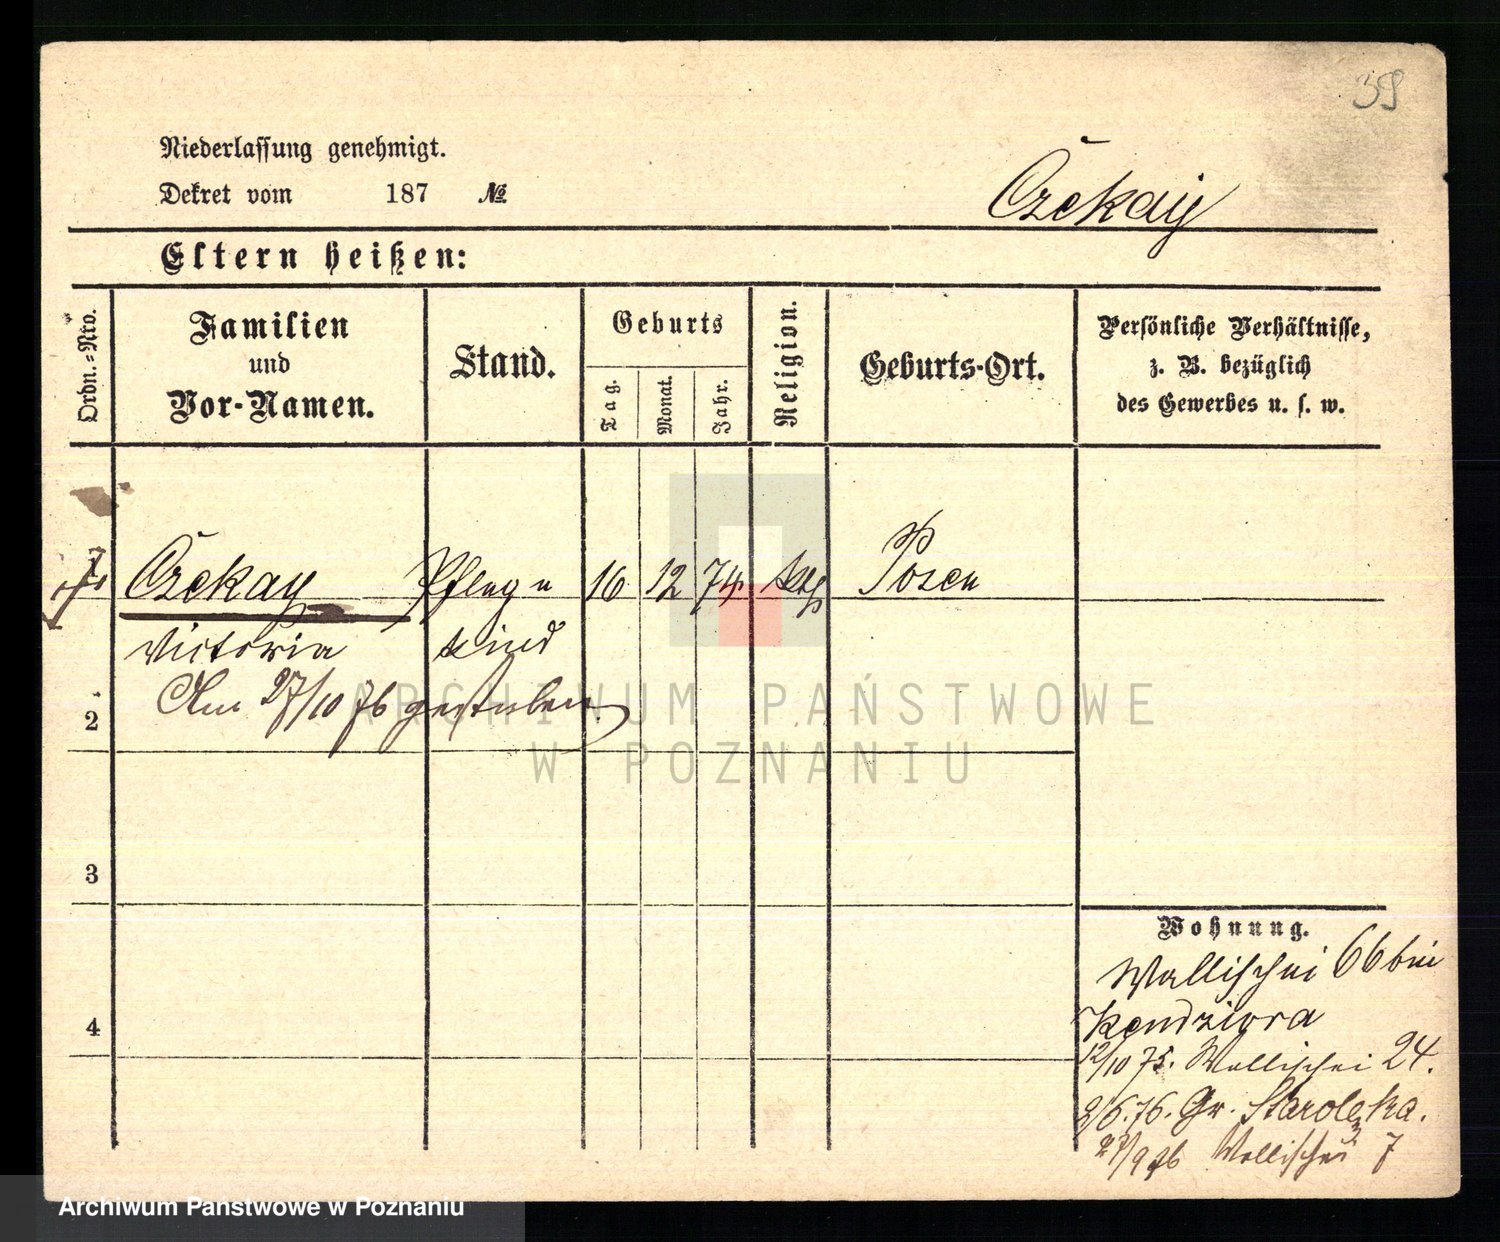 39
Niederlassung genehmigt.
Dekret vom 187 №
Czekay
Eltern heißen:
Ordn.=Nro.
Familien
und
Vor-Namen.
Stand.
Geburts
Tag.
Monat.
Jahr.
Religion.
Geburts-Ort.
Persönliche Verhältnisse,
z. B. bezüglich
des Gewerbes u. s. w.
Czekay Pflege 16 12 74 kth Posen
Victoria kind
2 Am 27/10 76 gestorben.
3
4
Wohnung.
Wallischei 66 bei
Kendziora
12/10 75. Wallischei 24.
2/6. 76. Gr. Starolęka.
27/9 76 Wallischei 7
ARCHIWUM PAŃSTWOWE
W POZNANIU
Archiwum Państwowe w Poznaniu